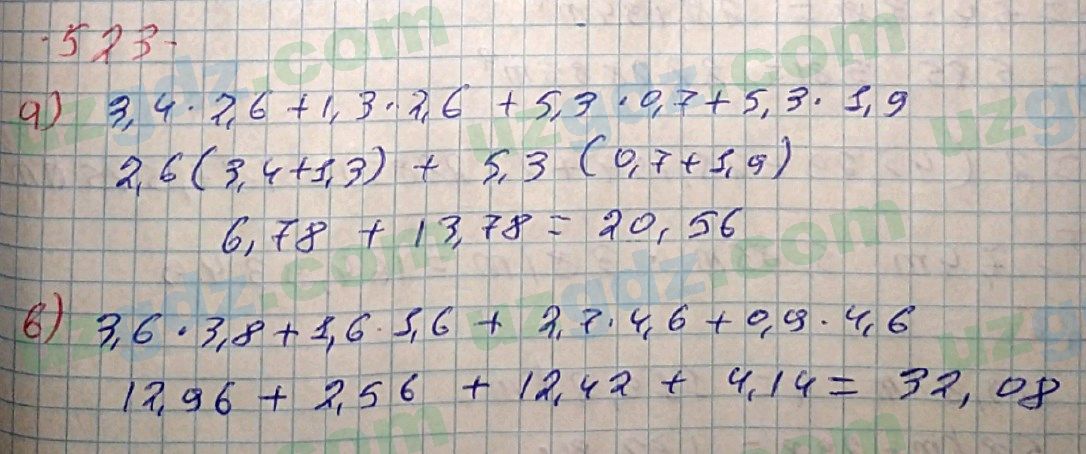 ·523-
а) 3,4·2,6+1,3·2,6+5,3·0,7+5,3·1,9
2,6(3,4+1,3)+5,3(0,7+1,9)
6,78+13,78=20,56
в) 3,6·3,8+1,6·1,6+2,7·4,6+0,9·4,6
12,96+2,56+12,42+4,14=32,08
uzgdz.com
uzgdz.com
uzgdz.com
uzgdz.com